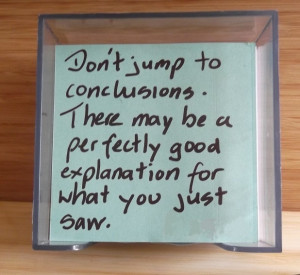 Don't jump to
conclusions.
There may be a
perfectly good
explanation for
what you just
saw.